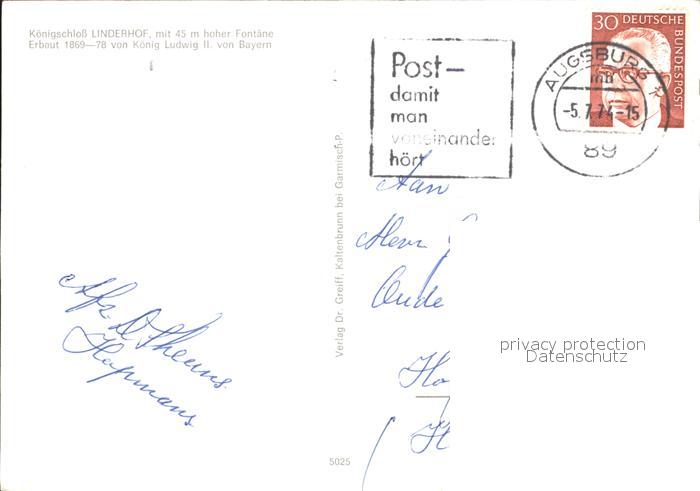 Königschloß LINDERHOF, mit 45 m hoher Fontäne
Erbaut 1869—78 von König Ludwig II. von Bayern
Post—
damit
man
voneinander
hört
AUGSBURG
mn
-5.7.74-15
89
30 DEUTSCHE
BUNDESPOST
Aan
Oude
Ho
privacy protection
Datenschutz
Verlag Dr. Greiff, Kaltenbrunn bei Garmisch-P.
5025